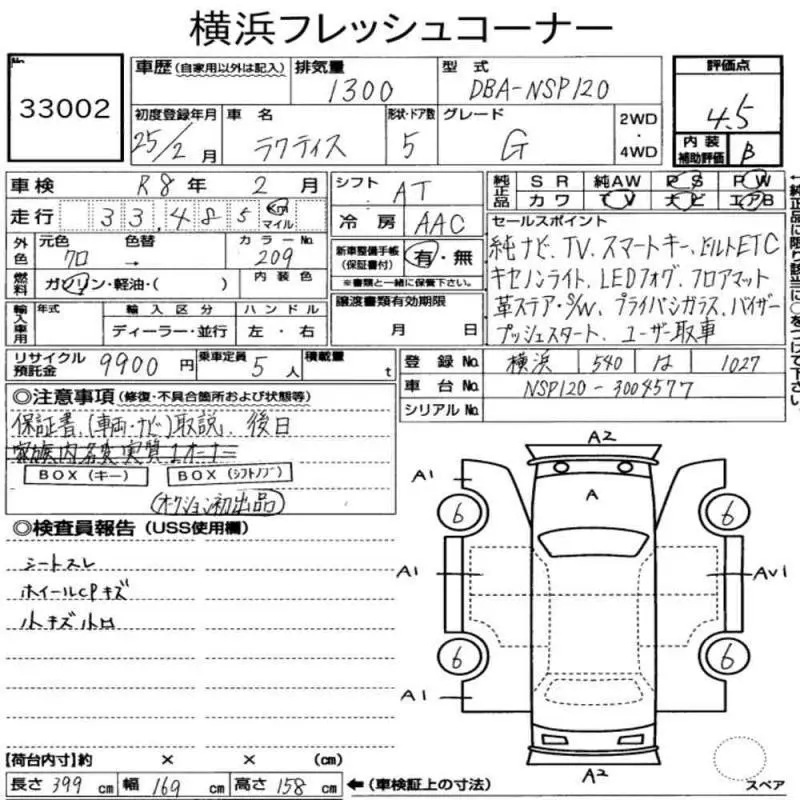 横浜フレッシュコーナー
No. 33002
車歴 (自家用以外は記入) 排気量 1300 型式 DBA-NSP120 評価点 4.5
初度登録年月 25/2月 車名 ラクティス 形状・ドア数 5 グレード G 2WD・4WD 内装補助評価 B
車検 R8年 2月 シフト AT 純正品 SR 純AW PS PW
カワ TV ナビ エアB
走行 33,485 Km マイル 冷房 AAC セールスポイント
外色 元色 クロ 色替 → カラーNo. 209 新車整備手帳(保証書付) 有・無
※書類と一緒に保管下さい。
燃料 ガソリン・軽油・( ) 内装色
純ナビ、TV、スマートキー、ビルトETC
キセノンライト、LEDフォグ、フロアマット
革ステア・S/W、プライバシガラス、バイザー
プッシュスタート、ユーザー取車
輸入車用 年式 輸入区分 ハンドル 譲渡書類有効期限
ディーラー・並行 左・右 月 日
リサイクル預託金 9900円 乗車定員 5人 積載量 t
登録No. 横浜 540 は 1027
車台No. NSP120-3004577
シリアルNo.
◎注意事項 (修復・不具合箇所および状態等)
保証書、(車両・ナビ)取説、後日
家族内名変実質1オーナー
BOX(キー) BOX(シフトノブ)
オクション初出品
◎検査員報告 (USS使用欄)
シートスレ
ホイールCPキズ
小キズ小凹
A2
A1 A
6 6
A1 AV1
6 6
A1
A2
スペア
【荷台内寸】約 × × (cm)
長さ 399 cm 幅 169 cm 高さ 158 cm ←(車検証上の寸法)
←純正品に限り該当に○をつけて下さい。